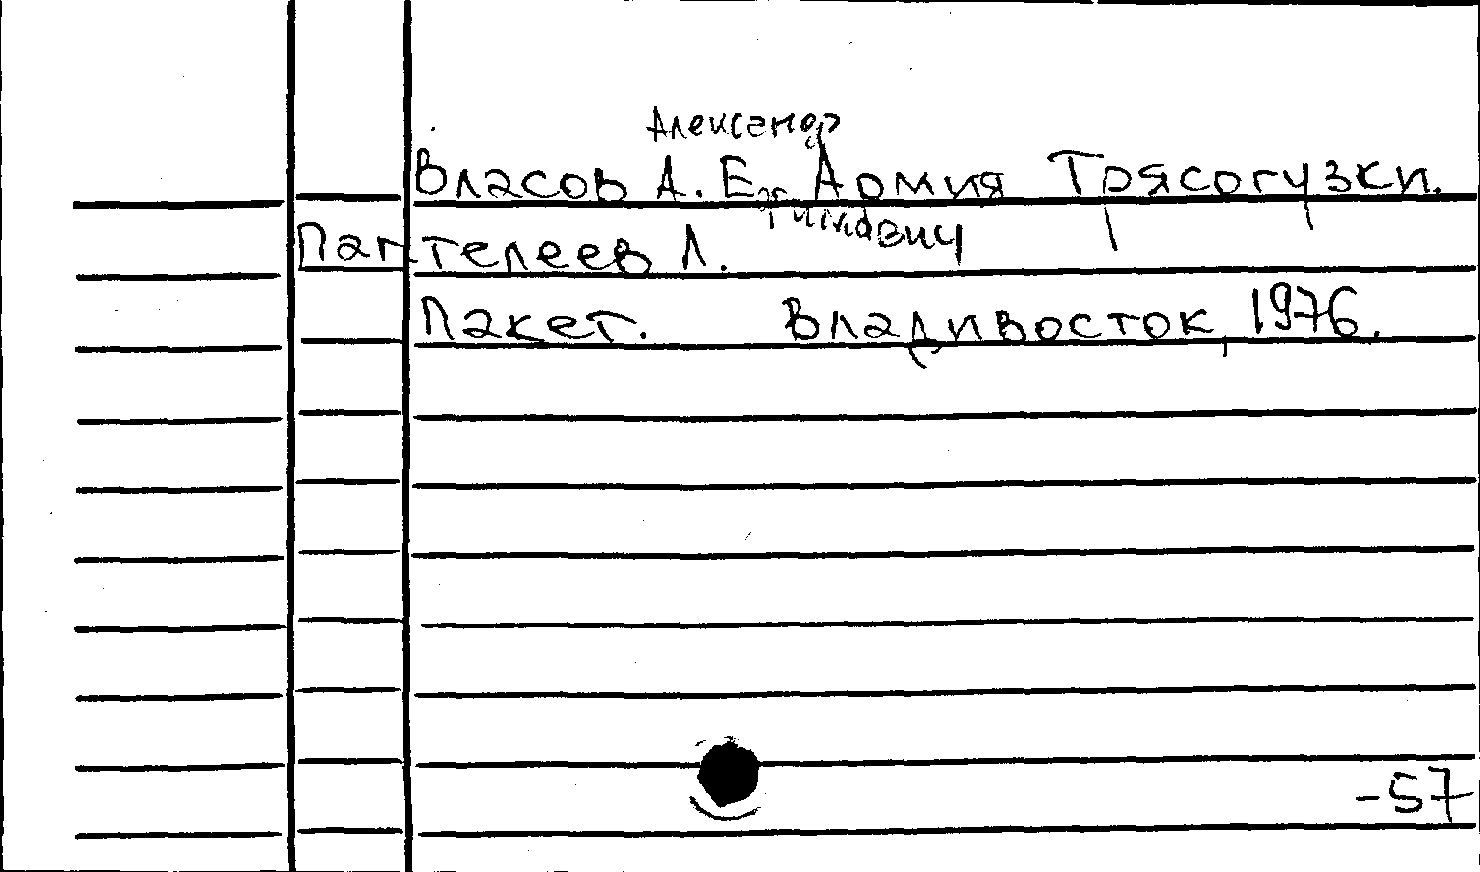 Александр
Власов А. Ефимович Армия Трясогузки.
Пантелеев Л.
Пакет. Владивосток, 1976.
-57